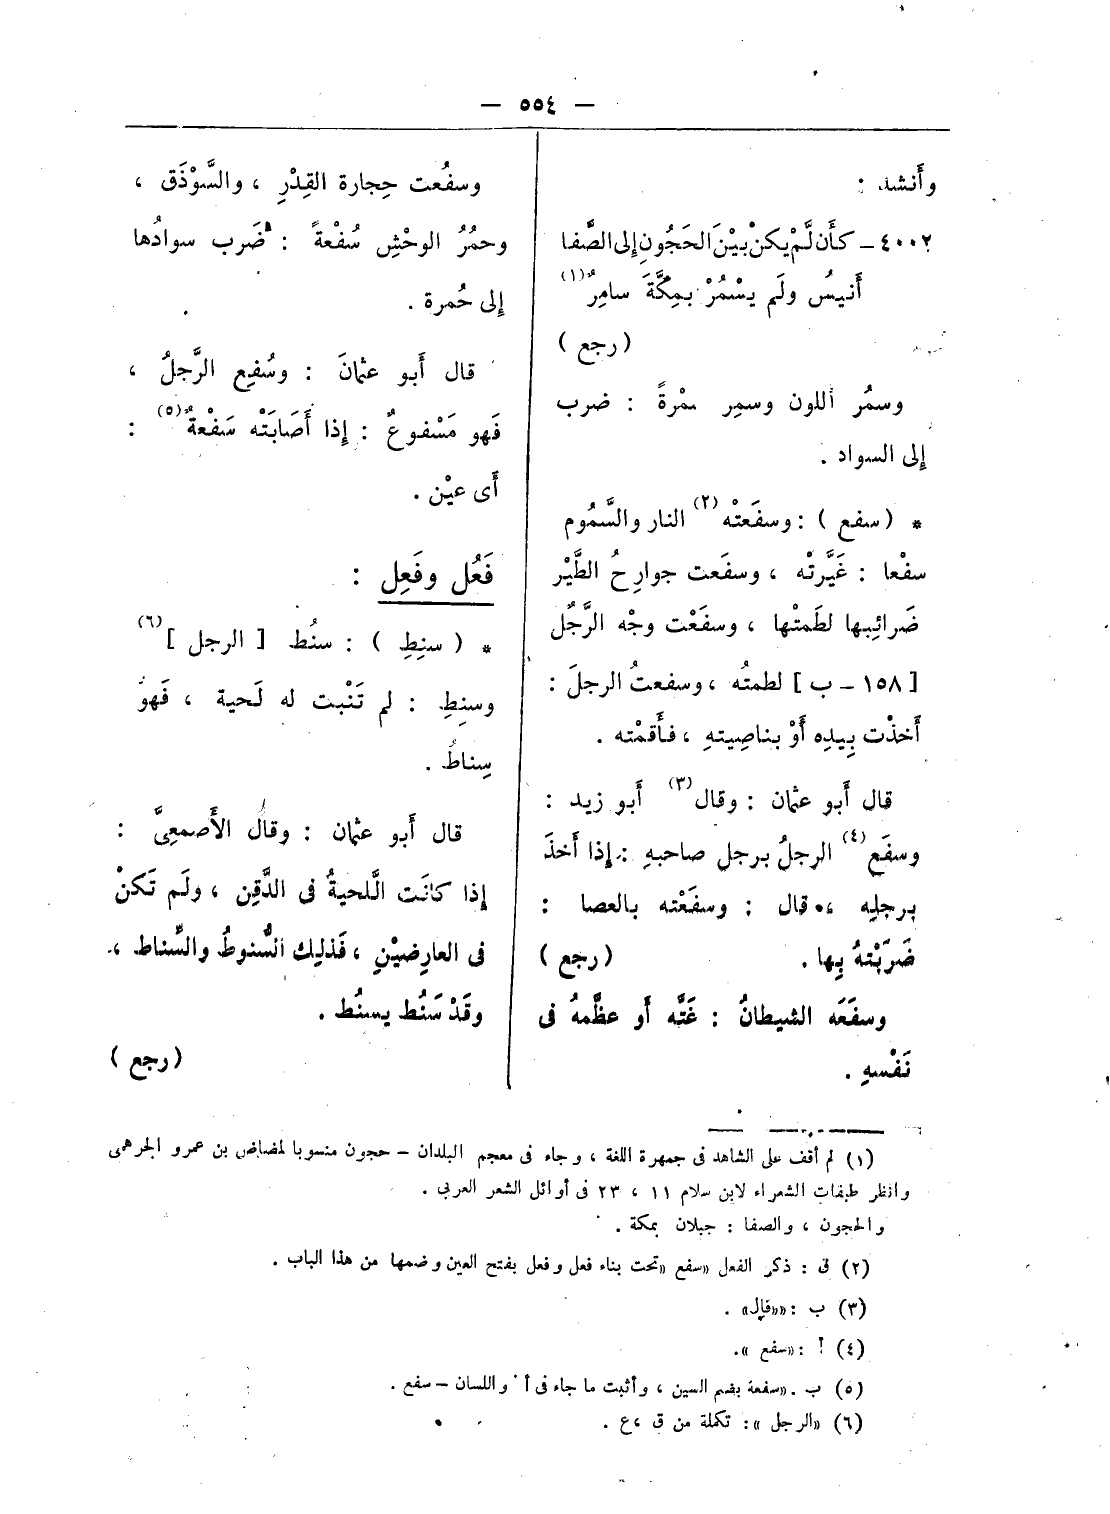 — ٥٥٤ —
وأَنشد :
٤٠٠٢ – كأَن لَّمْ يكنْ بيْنَ الحَجُونِ إلى الصَّفا
أَنيسُ ولَم يسْمُرْ بمِكَّةَ سامِرُ (١)
(رجع)
وسمُر اللون وسمِر سمْرةً : ضرب
إلى السواد .
* ( سفع ) : وسفَعتْه (٢) النار والسَّمُوم
سفْعا : غَيَّرتْه ، وسفَعت جوارحُ الطَّيْر
ضَرائِبها لطَمتْها ، وسفَعْت وجْه الرَّجُل
[ ١٥٨ – ب ] لطمتُه ، وسفعتُ الرجلَ :
أخذْت بِيدِه أَوْ بناصِيتهِ ، فأَقمْته .
قال أَبو عثمان : وقال (٣) أَبو زيد :
وسفَع (٤) الرجلُ برجل صاحبهِ : إذا أَخذَ
برجلِه ، قال : وسفَعْته بالعصا :
ضَرَبْتهُ بِها . (رجع)
وسفَعَه الشيطانُ : غَتَّه أَو عظَّمهُ فى
نَفْسهِ .
وسفُعت حِجارة القِدْرِ ، والسَّوْذَق ،
وحمُرُ الوحْشِ سُفْعةً : ضَرب سوادُها
إلى حُمرة .
قال أَبو عثمانَ : وسُفِع الرَّجلُ ،
فَهو مَسْفوعُ : إذا أَصَابَتْه سَفْعةٌ (٥) :
أَى عيْن .
فَعُل وفَعِل :
* ( سنِطِ ) : سنُط [ الرجل ] (٦)
وسنِطِ : لم تَنْبت له لَحية ، فَهوَ
سِناطُ .
قال أَبو عثمان : وقال الأَصمعِىَّ :
إذا كانَت الَّلحيةُ فى الذَّقِن ، ولَم تَكنْ
فى العارِضيْنِ ، فَذلِك السُّنوطُ والسِّناط ،
وقَدْ سَنُط يسنُط .
(رجع)
(١) لم أقف على الشاهد فى جمهرة اللغة ، وجاء فى معجم البلدان – حجون منسوبا لمضاض بن عمرو الجرهمى
وانظر طبقات الشعراء لابن سلام ١١ ، ٢٣ فى أوائل الشعر العربي .
والحجون ، والصفا : جبلان بمكة .
(٢) ق : ذكر الفعل «سفع «تحت بناء فعل وفعل بفتح العين وضمها من هذا الباب .
(٣) ب : ««قال» .
(٤) أ : «سفع ».
(٥) ب . «سفعة بضم السين ، وأثبت ما جاء فى أ واللسان – سفع .
(٦) «الرجل »: تكملة من ق ،ع .